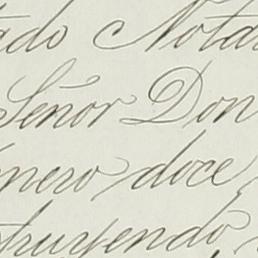 ado Nota
Señor Don
mero doce,
truyendo